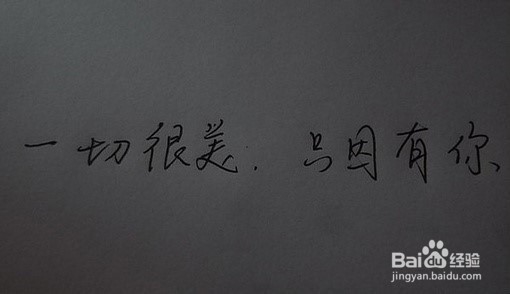 一切很美.只因有你
Baidu经验
jingyan.baidu.com